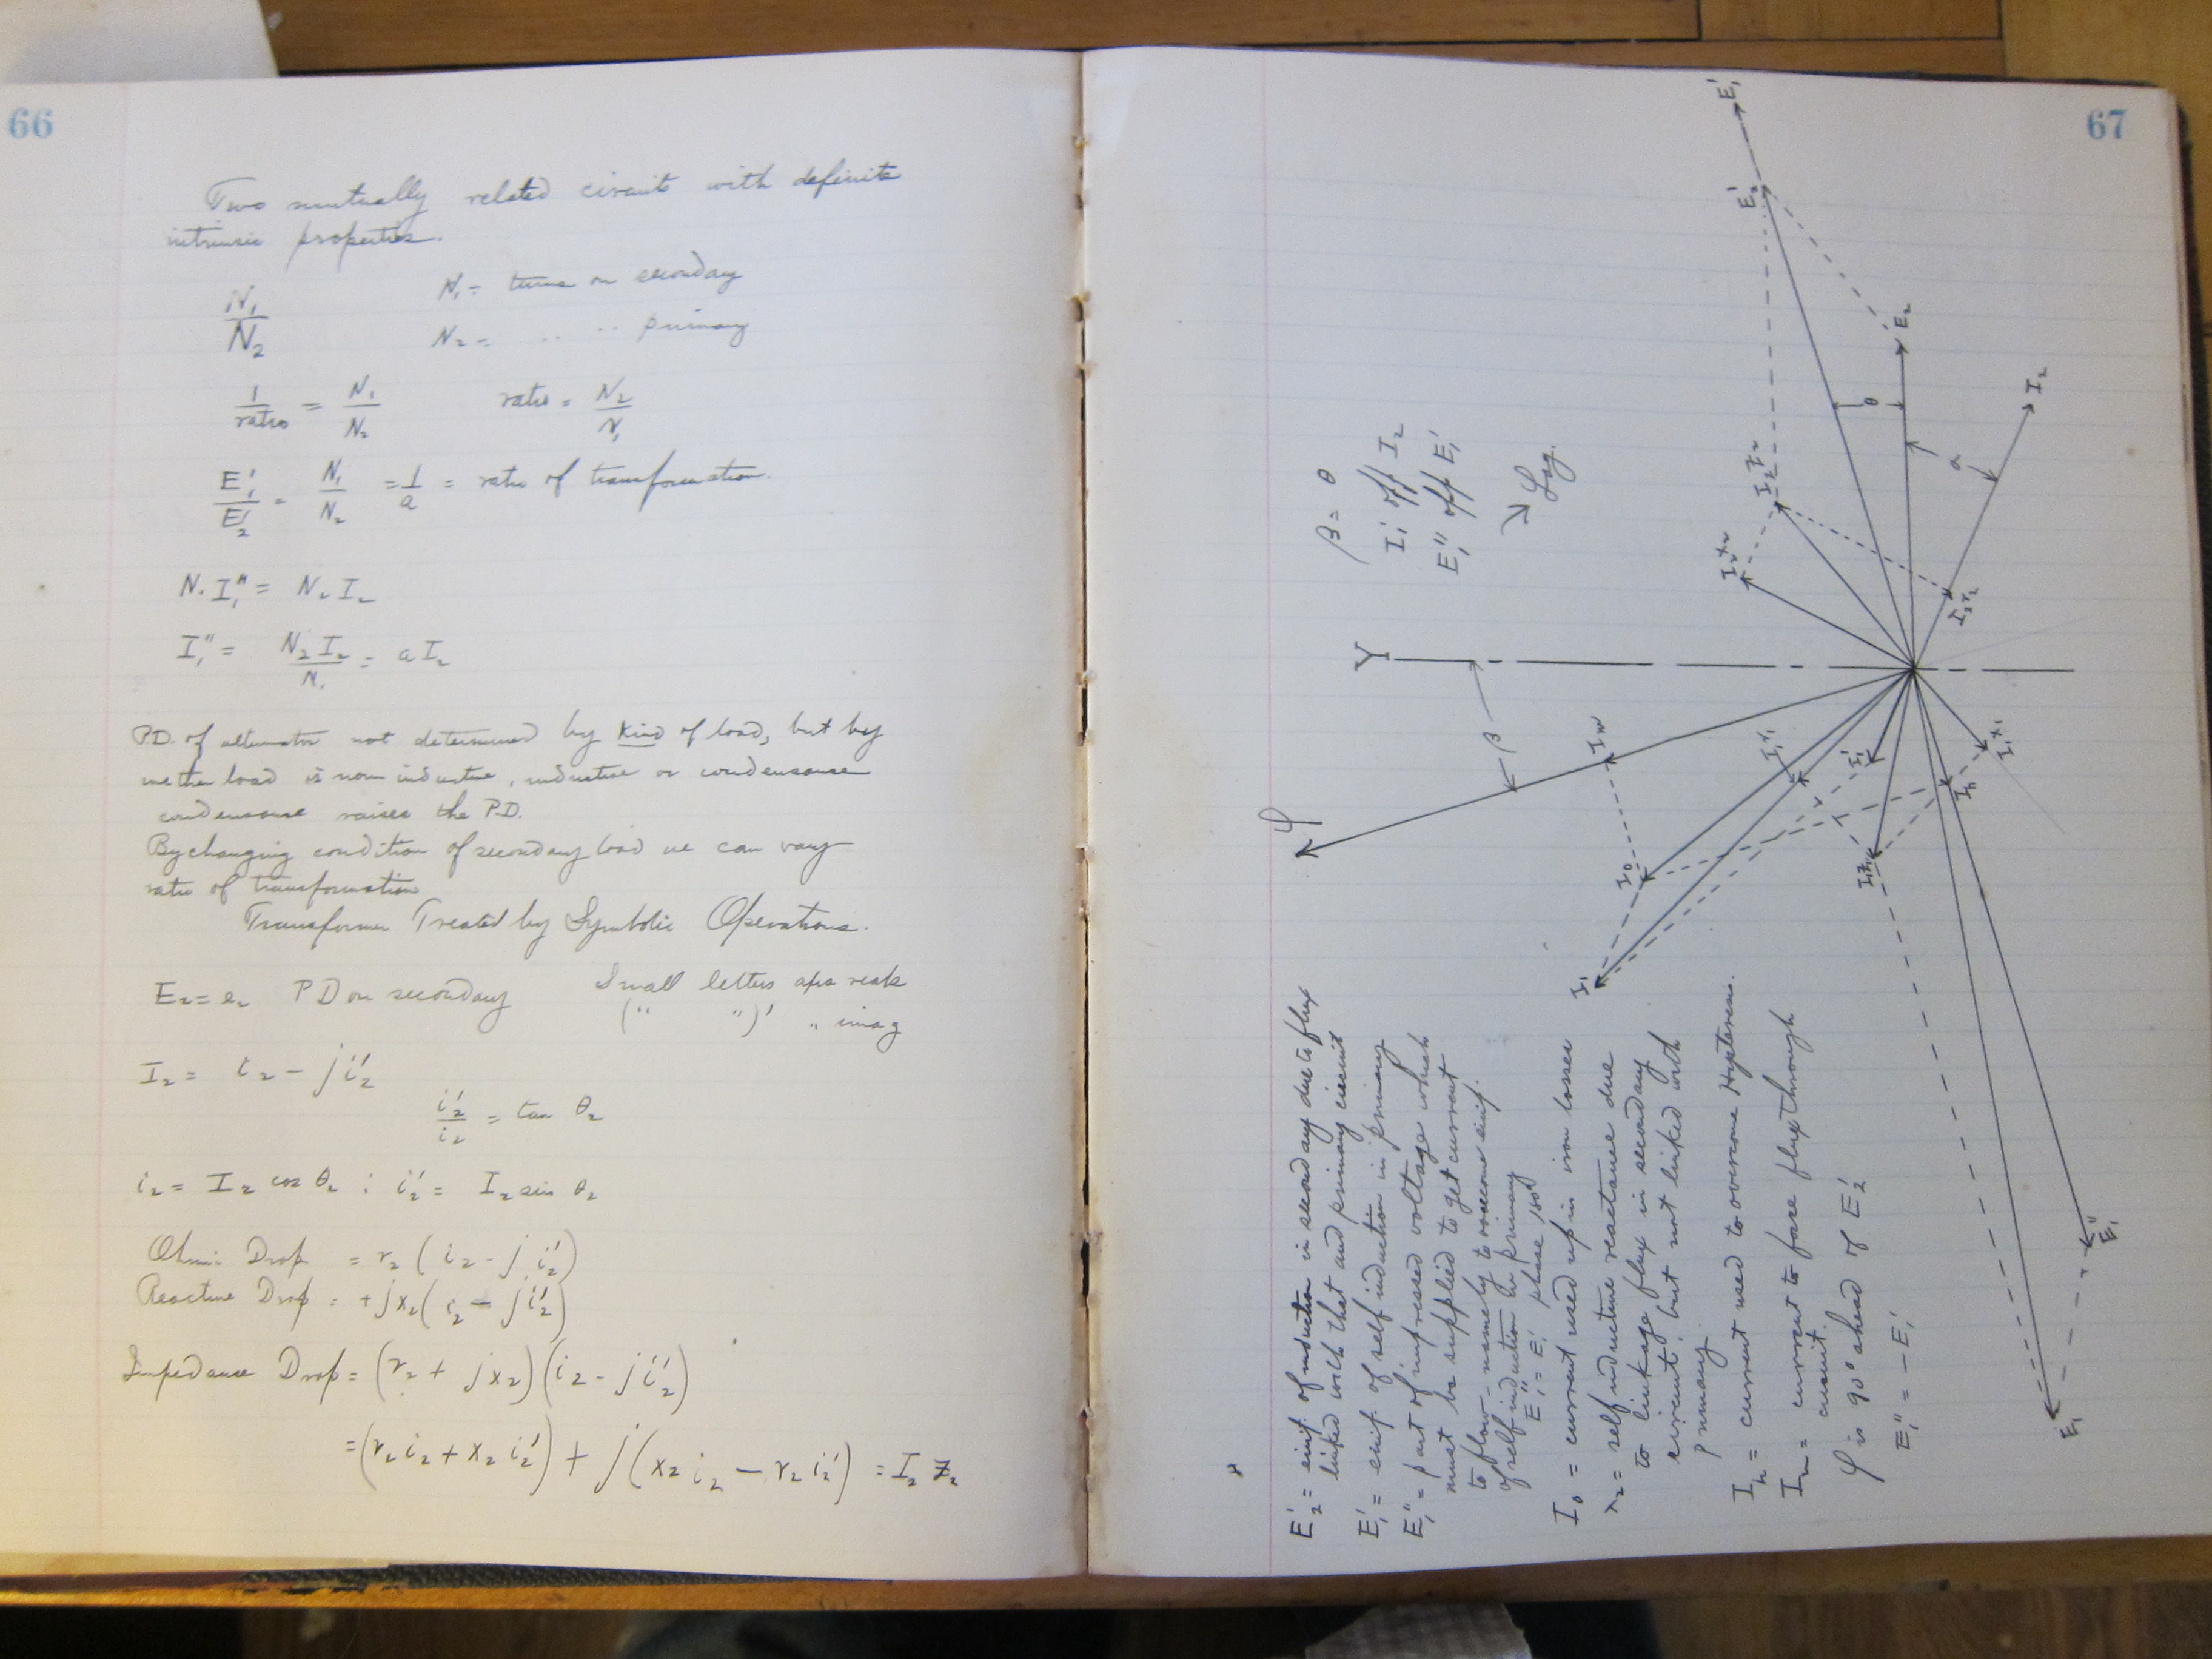 66
Two mutually related circuits with definite
intrinsic properties.
N₁/N₂ N₁ = turns on secondary
N₂ = .. .. primary
1/ratio = N₁/N₂ ratio = N₂/N₁
E₁'/E₂' = N₁/N₂ = 1/a = ratio of transformation.
N₁ I₁" = N₂ I₂
I₁" = N₂ I₂/N₁ = a I₂
P.D. of alternator not determined by kind of load, but by
load is non inductive, inductive or condensance
condensance raises the P.D.
By changing condition of secondary load we can vary
ratio of transformation
Transformer Treated by Symbolic Operations.
E₂ = e₂ PD on secondary Small letters are reals
(" ")' " imag
I₂ = i₂ - j i₂'
i₂'/i₂ = tan θ₂
i₂ = I₂ cos θ₂ : i₂' = I₂ sin θ₂
Ohmic Drop = r₂ (i₂ - j i₂')
Reactive Drop = + j x₂ (i₂ - j i₂')
Impedance Drop = (r₂ + j x₂)(i₂ - j i₂')
= (r₂ i₂ + x₂ i₂') + j (x₂ i₂ - r₂ i₂') = I₂ z₂
67
E₂' = emf of induction in secondary due to flux
linked with that and primary circuit
E₁' = emf of self induction in primary
E₁" = part of impressed voltage which
must be supplied to get current
to flow - namely to overcome emf.
of self induction in primary
E₁" = E₁' phase 180°
I₀ = current used up in iron losses
x₂ = self inductive reactance due
to linkage flux in secondary
circuit, but not linked with
primary.
Iₕ = current used to overcome Hysteresis.
Iₘ = current to force flux through
circuit.
φ is 90° ahead of E₂'
E₁" = - E₁'
β = θ
I₁' off I₂
E₁" off E₁'
Lag.
Y
φ
β
Iₘ
I₀
I₁
I₁r₁
I₁'
I₁z₁
Iₕ
I₁x₁
E₁
E₁"
I₂x₂
I₂z₂
I₂r₂
E₁'
E₂'
E₂
θ
a
I₂